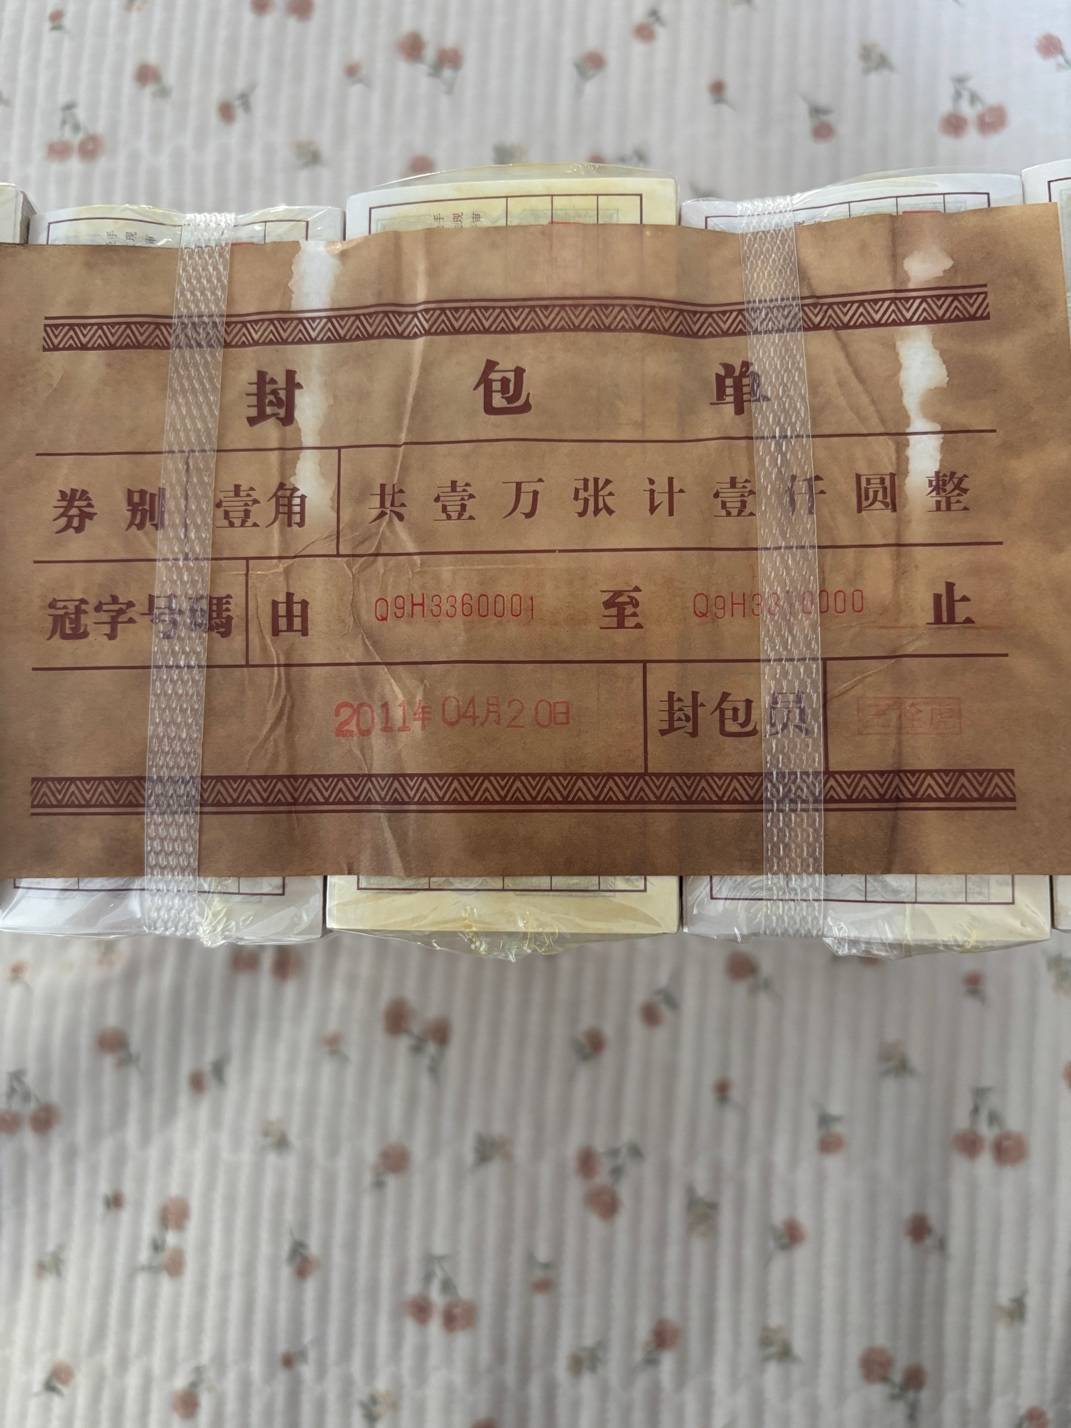 封包单
券别 壹角 共壹万张计壹仟圆整
冠字号碼 由 Q9H3360001 至 Q9H3370000 止
2011年04月20日 封包员